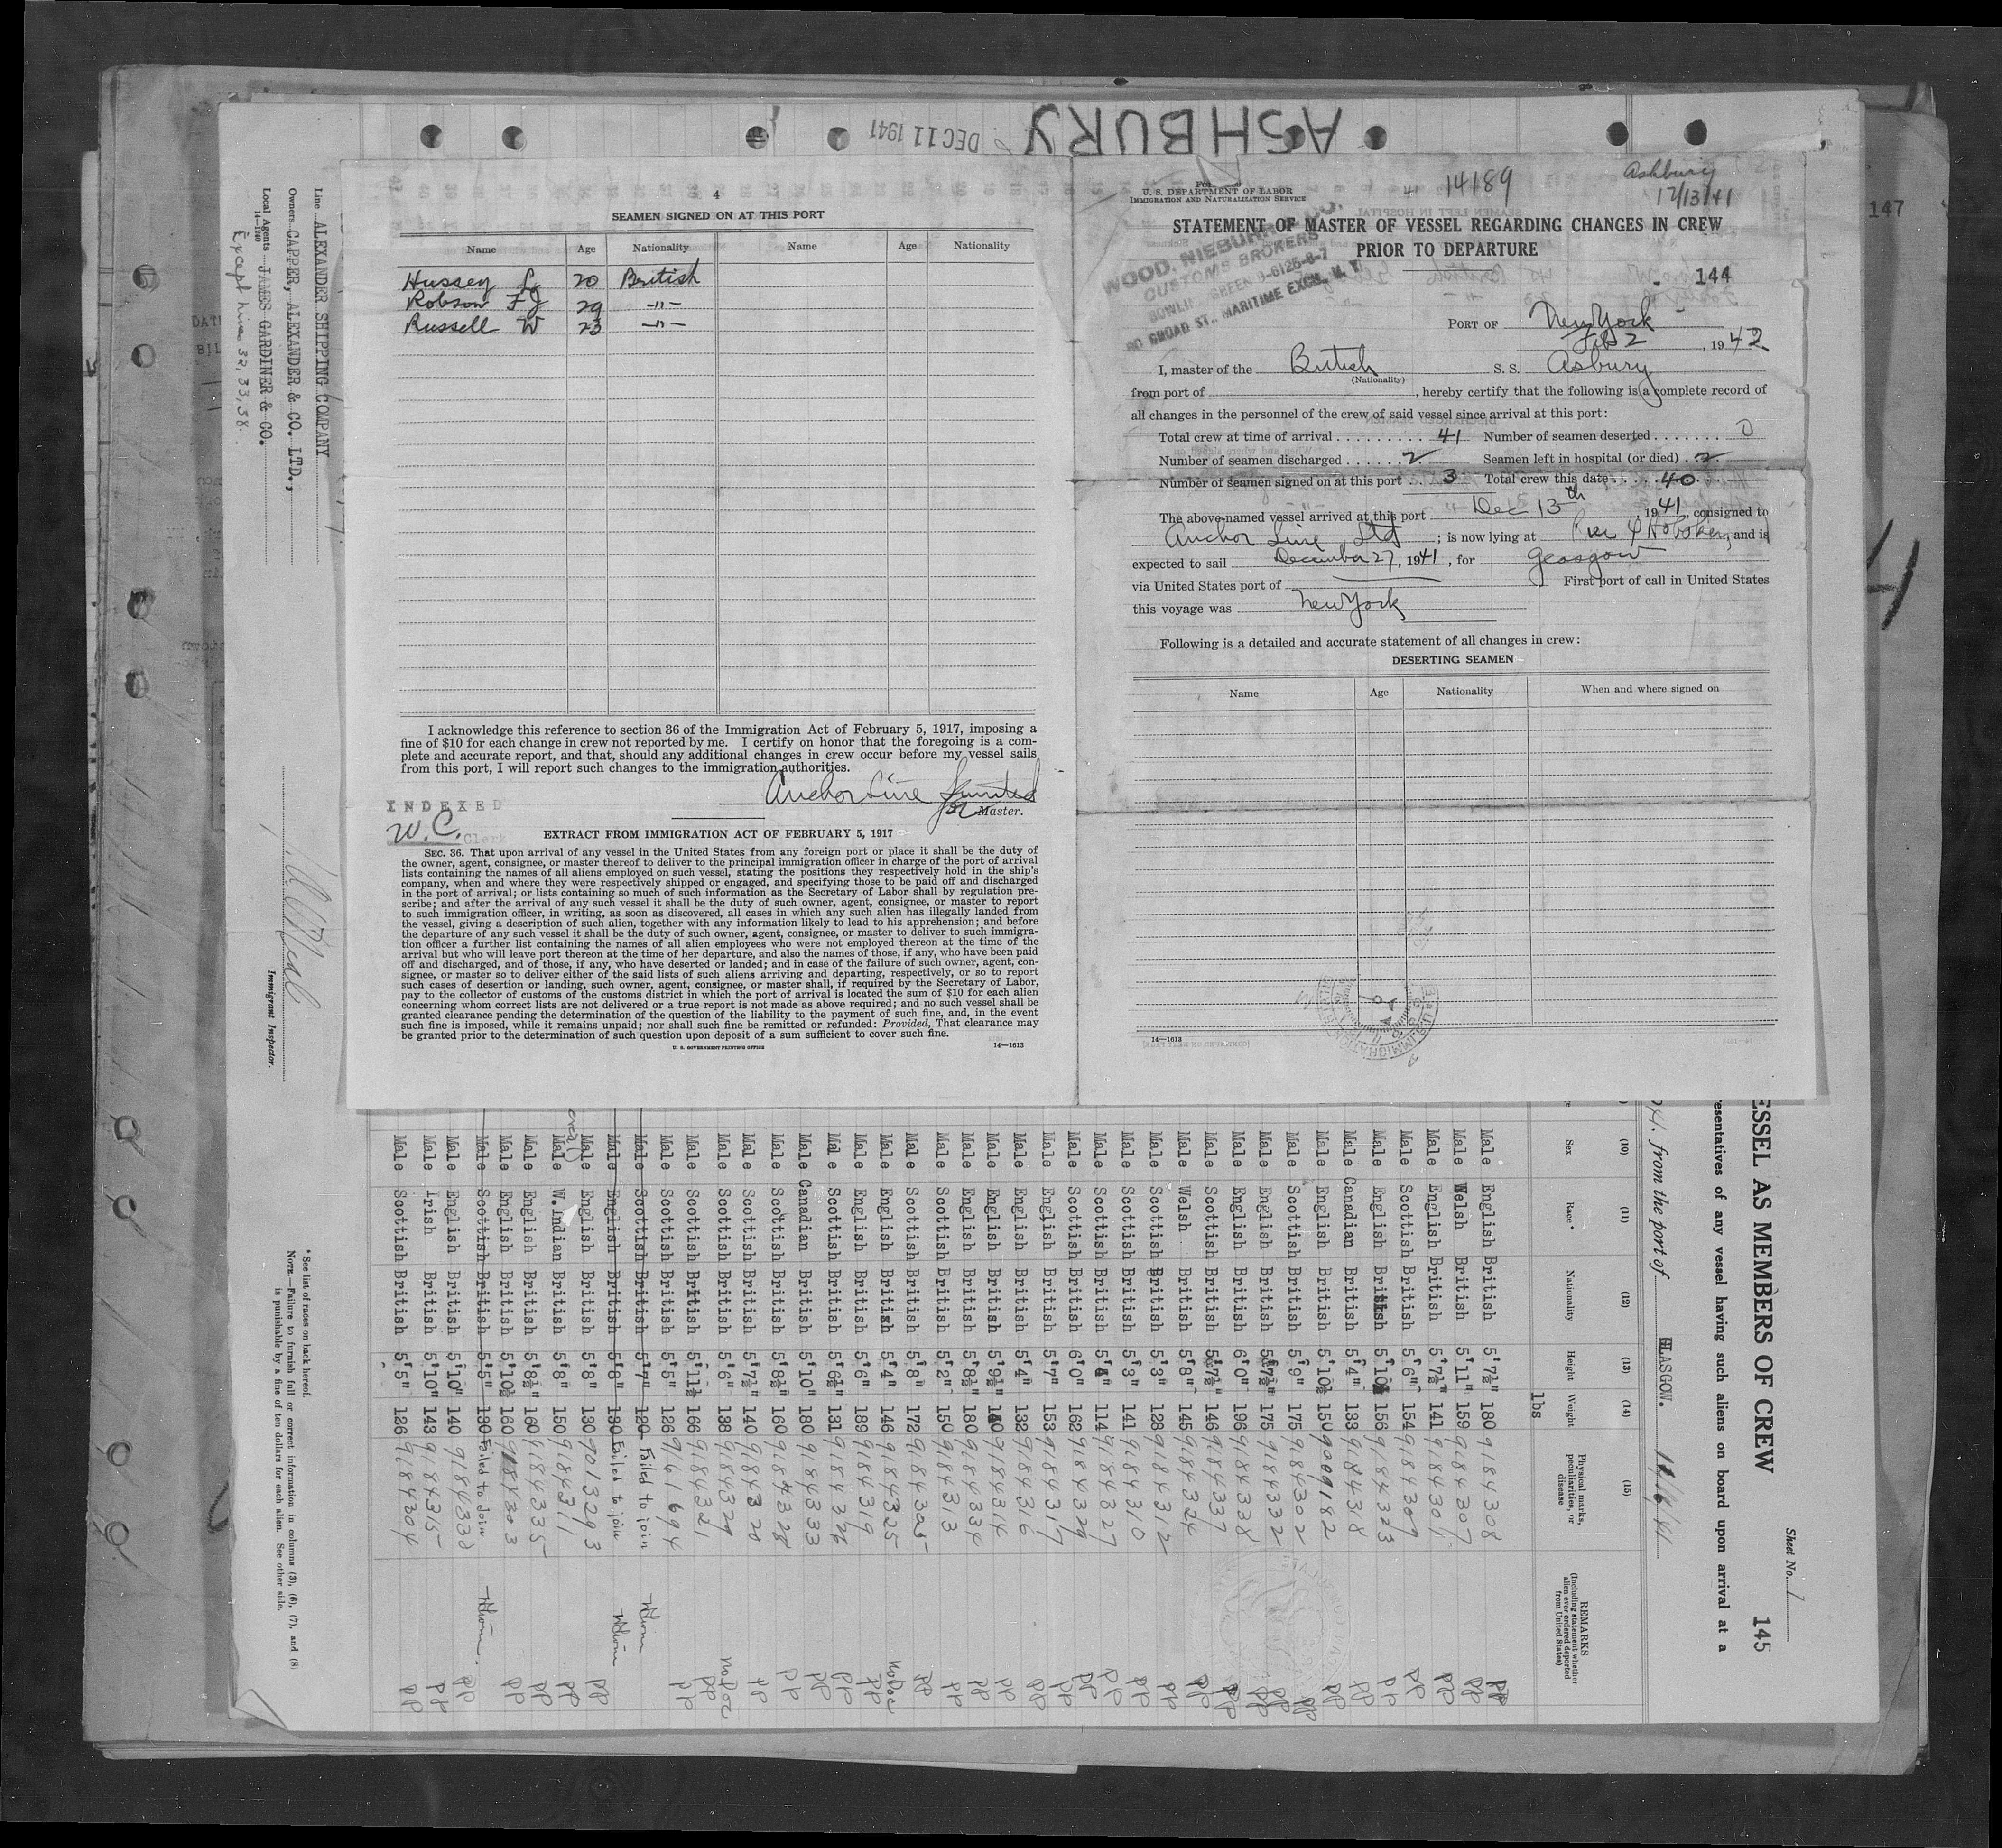 ASHBURY
DEC 11 1941
147
4
SEAMEN SIGNED ON AT THIS PORT
Name Age Nationality Name Age Nationality
Hussey L 20 British
Robson FJ 29 -"-
Russell W 23 -"-
I acknowledge this reference to section 36 of the Immigration Act of February 5, 1917, imposing a
fine of $10 for each change in crew not reported by me. I certify on honor that the foregoing is a com-
plete and accurate report, and that, should any additional changes in crew occur before my vessel sails
from this port, I will report such changes to the immigration authorities.
Anchor Line Limited
Master.
INDEXED
W.C. Clerk
EXTRACT FROM IMMIGRATION ACT OF FEBRUARY 5, 1917
SEC. 36. That upon arrival of any vessel in the United States from any foreign port or place it shall be the duty of
the owner, agent, consignee, or master thereof to deliver to the principal immigration officer in charge of the port of arrival
lists containing the names of all aliens employed on such vessel, stating the positions they respectively hold in the ship's
company, when and where they were respectively shipped or engaged, and specifying those to be paid off and discharged
in the port of arrival; or lists containing so much of such information as the Secretary of Labor shall by regulation pre-
scribe; and after the arrival of any such vessel it shall be the duty of such owner, agent, consignee, or master to report
to such immigration officer, in writing, as soon as discovered, all cases in which any such alien has illegally landed from
the vessel, giving a description of such alien, together with any information likely to lead to his apprehension; and before
the departure of any such vessel it shall be the duty of such owner, agent, consignee, or master to deliver to such immigra-
tion officer a further list containing the names of all alien employees who were not employed thereon at the time of the
arrival but who will leave port thereon at the time of her departure, and also the names of those, if any, who have been paid
off and discharged, and of those, if any, who have deserted or landed; and in case of the failure of such owner, agent, con-
signee, or master so to deliver either of the said lists of such aliens arriving and departing, respectively, or so to report
such cases of desertion or landing, such owner, agent, consignee, or master shall, if required by the Secretary of Labor,
pay to the collector of customs of the customs district in which the port of arrival is located the sum of $10 for each alien
concerning whom correct lists are not delivered or a true report is not made as above required; and no such vessel shall be
granted clearance pending the determination of the question of the liability to the payment of such fine, and, in the event
such fine is imposed, while it remains unpaid; nor shall such fine be remitted or refunded: Provided, That clearance may
be granted prior to the determination of such question upon deposit of a sum sufficient to cover such fine.
U. S. GOVERNMENT PRINTING OFFICE
14—1613
U. S. DEPARTMENT OF LABOR
IMMIGRATION AND NATURALIZATION SERVICE
14189
Ashbury
12/13/41
STATEMENT OF MASTER OF VESSEL REGARDING CHANGES IN CREW
PRIOR TO DEPARTURE
WOOD, NIEBUHR & CO.
CUSTOMS BROKERS
BOWLING GREEN 9-6125-6-7
80 BROAD ST., MARITIME EXCH., N. Y.
144
PORT OF New York
Feb 2, 1942
I, master of the British S. S. Asbury
(Nationality)
from port of , hereby certify that the following is a complete record of
all changes in the personnel of the crew of said vessel since arrival at this port:
Total crew at time of arrival 41 Number of seamen deserted 0
Number of seamen discharged 2 Seamen left in hospital (or died) 2
Number of seamen signed on at this port 3 Total crew this date 40
The above-named vessel arrived at this port Dec 13th, 1941, consigned to
Anchor Line Ltd; is now lying at Pier 4 Hoboken, and is
expected to sail December 27, 1941, for Glasgow
via United States port of First port of call in United States
this voyage was New York
Following is a detailed and accurate statement of all changes in crew:
DESERTING SEAMEN
Name Age Nationality When and where signed on
14—1613
Line ALEXANDER SHIPPING COMPANY
Owners CAPPER, ALEXANDER & CO. LTD.,
Local Agents JAMES GARDINER & CO.
14—1240
Except lines 32, 33, 38.
Immigrant Inspector.
* See list of races on back hereof.
NOTE.—Failure to furnish full or correct information in columns (3), (6), (7), and (8)
is punishable by a fine of ten dollars for each alien. See other side.
Sheet No. 1
145
ESSEL AS MEMBERS OF CREW
esentatives of any vessel having such aliens on board upon arrival at a
from the port of GLASGOW.
(10) (11) (12) (13) (14) (15)
Sex Race * Nationality Height Weight Physical marks, peculiarities, or disease
REMARKS (Including statement whether alien ever ordered deported from United States)
lbs
Male English British 5'7½" 180 9184308 PP
Male Welsh British 5'11" 159 9184307 PP
Male English British 5'7½" 141 9184301 PP
Male Scottish British 5'6" 154 9184309 PP
Male English British 5'10½ 156 9184323 PP
Male Canadian British 5'4" 133 9184318 PP
Male English British 5'10½ 150 9099182 PP
Male Scottish British 5'9" 175 9184302 PP
Male English British 5'7½" 175 9184332 PP
Male English British 6'0" 196 9184338 PP
Male Scottish British 5'7½" 146 9184337 PP
Male Welsh British 5'8" 145 9184324 PP
Male Scottish British 5'3" 128 9184312 PP
Male Scottish British 5'3" 141 9184310 PP
Male Scottish British 5'4" 114 9184327 PP
Male Scottish British 6'0" 162 9184329 PP
Male English British 5'7" 153 9184317 PP
Male English British 5'4" 132 9184316 PP
Male English British 5'9½" 140 9184314 PP
Male English British 5'8½" 180 9184334 PP
Male Scottish British 5'2" 150 9184313 PP
Male Scottish British 5'8" 172 PP
Male English British 5'4" 146 9184325 No Doc
Male English British 5'6" 189 9184319 PP
Male Scottish British 5'6½" 131 9184326 PP
Male Canadian British 5'10" 180 9184333 PP
Male Scottish British 5'8½" 160 9184328 PP
Male Scottish British 5'7½" 140 9184320 PP
Male Scottish British 5'6" 138 No Doc
Male Scottish British 5'11½ 166 9184321 PP
Male Scottish British 5'5" 126 9161694 PP
Male Scottish British 5'7" 120 Failed to join
Male English British 5'8" 130 Failed to join
Male English British 5'8" 130 9013293 PP
Male W.Indian British 5'8" 150 9184311 PP
Male English British 5'8½" 160 9184335 PP
Male English British 5'10½ 160 9184303 PP
Male Scottish British 5'5" 130 Failed to join
Male English British 5'10" 140 PP
Male Irish British 5'10" 143 9184315 PP
Male Scottish British 5'5" 126 9184304 PP